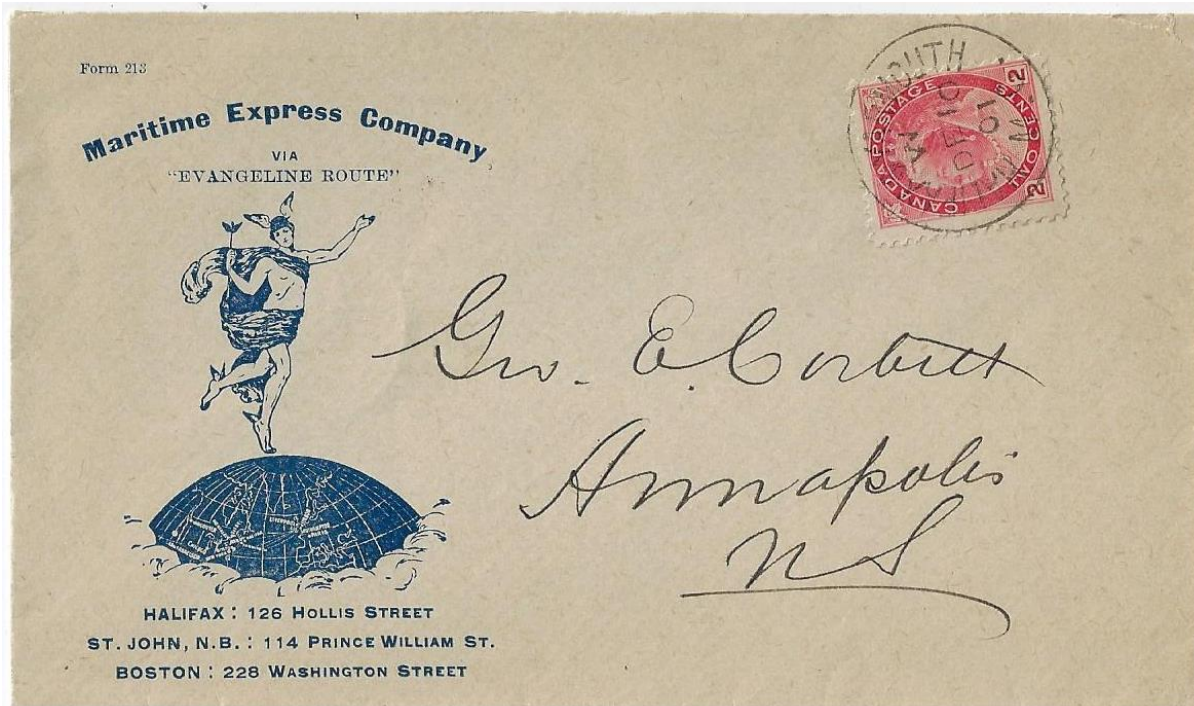 Form 213
Maritime Express Company
VIA
"EVANGELINE ROUTE"
HALIFAX: 126 HOLLIS STREET
ST. JOHN, N.B.: 114 PRINCE WILLIAM ST.
BOSTON: 228 WASHINGTON STREET
CANADA POSTAGE
TWO CENTS
2 2
AM
DE 10
01
Geo. E. Corbitt
Annapolis
NS